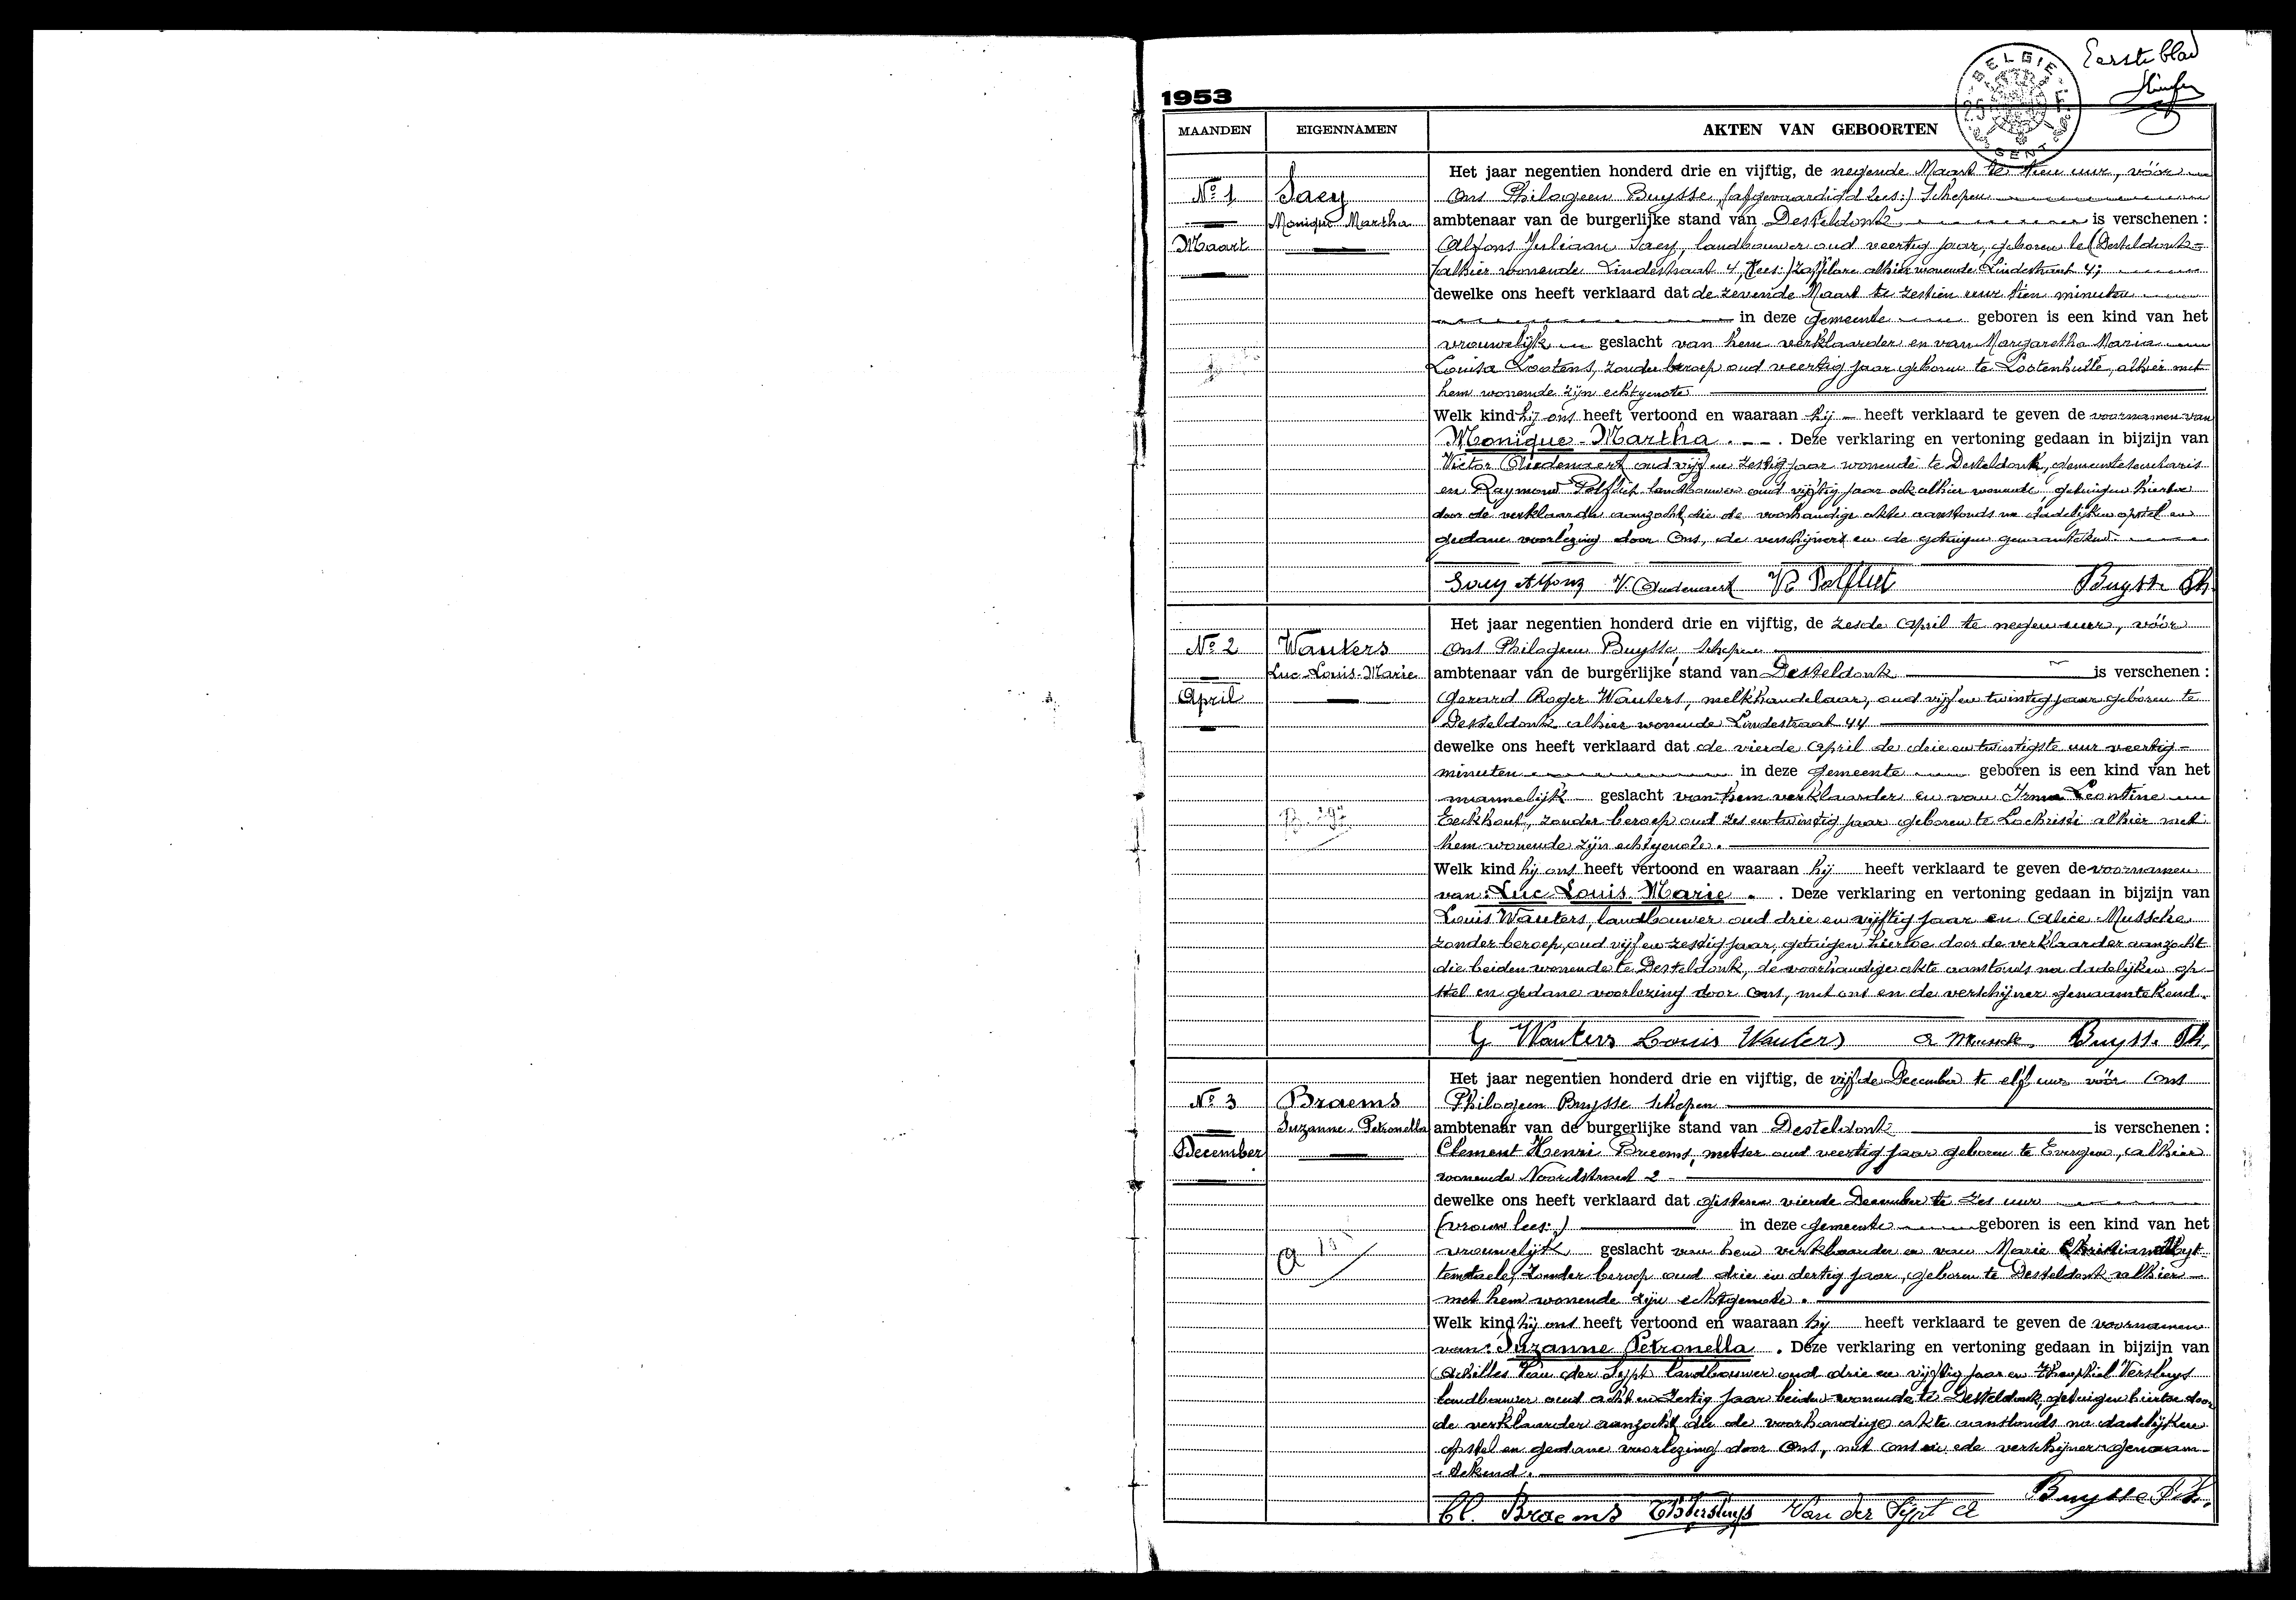 Eerste blad
BELGIE
GENT
1953
MAANDEN EIGENNAMEN AKTEN VAN GEBOORTEN
Het jaar negentien honderd drie en vijftig, de negende Maart te tien uur, vóór
No 1 Saey Ons Philogeen Buysse, (afgevaardigd lees:) Schepen
Monique Martha ambtenaar van de burgerlijke stand van Desteldonk is verschenen :
Maart Alfons Juliaan Saey, landbouwer oud veertig jaar, geboren te (Desteldonk-
alhier wonende Lindestraat 4, lees:) Zaffelare alhier wonende Lindestraat 4;
dewelke ons heeft verklaard dat de zevende Maart te zestien uur tien minuten
in deze gemeente geboren is een kind van het
vrouwelijk geslacht van hem verklaarder en van Margaretha Maria
Louisa Lootens, zonder beroep oud veertig jaar geboren te Lootenhulle, alhier met
hem wonende zijn echtgenote
Welk kind hij ons heeft vertoond en waaraan hij heeft verklaard te geven de voornamen van
Monique-Martha. Deze verklaring en vertoning gedaan in bijzijn van
Victor Oudenaert oud vijf en zestig jaar wonende te Desteldonk, gemeentesecretaris
en Raymond Polfliet landbouwer oud vijftig jaar ook alhier wonende, getuigen hiertoe
door de verklaarder aanzocht die de voorhandige akte aanstonds na dadelijken opstel en
gedane voorlezing door Ons, de verschijner en de getuigen genaamtekend.
Saey Alfons V. Oudenaert R Polfliet Buysse Ph.
Het jaar negentien honderd drie en vijftig, de zesde April te negen uur, vóór
No 2 Wauters Ons Philogeen Buysse, Schepen
Luc-Louis-Marie ambtenaar van de burgerlijke stand van Desteldonk is verschenen :
April Gerard Roger Wauters, melkhandelaar, oud vijf en twintig jaar geboren te
Desteldonk alhier wonende Lindestraat 44
dewelke ons heeft verklaard dat de vierde April de drie en twintigste uur veertig-
minuten in deze gemeente geboren is een kind van het
mannelijk geslacht van hem verklaarder en van Irma Leontine
Eeckhout, zonder beroep oud zes en twintig jaar geboren te Lochristi alhier met
hem wonende zijn echtgenote.
Welk kind hij ons heeft vertoond en waaraan hij heeft verklaard te geven de voornamen
van: Luc Louis Marie. Deze verklaring en vertoning gedaan in bijzijn van
Louis Wauters, landbouwer oud drie en vijftig jaar en Alice Mussche
zonder beroep, oud vijf en zestig jaar, getuigen hiertoe door de verklaarder aanzocht
die beiden wonende te Desteldonk, de voorhandige akte aanstonds na dadelijken op-
stel en gedane voorlezing door Ons, met ons en de verschijner genaamtekend.
G Wauters Louis Wauters Buysse Ph.
Het jaar negentien honderd drie en vijftig, de vijfde December te elf uur vóór Ons
No 3 Braems Philogeen Buysse Schepen
Suzanne Petronella ambtenaar van de burgerlijke stand van Desteldonk is verschenen :
December Clement Henri Braems, metser oud veertig jaar geboren te Evergem, alhier
wonende Noordstraat 2
dewelke ons heeft verklaard dat gisteren vierde December te zes uur
(vrouw lees:) in deze gemeente geboren is een kind van het
vrouwelijk geslacht van hem verklaarder en van Marie Christiana Uyt-
tendaele, zonder beroep oud drie en dertig jaar, geboren te Desteldonk alhier
met hem wonende zijn echtgenote.
Welk kind hij ons heeft vertoond en waaraan hij heeft verklaard te geven de voornamen
van: Suzanne Petronella. Deze verklaring en vertoning gedaan in bijzijn van
Achilles Van der Sypt landbouwer oud drie en vijftig jaar en Theophiel Versluys
landbouwer oud acht en zestig jaar beiden wonende te Desteldonk, getuigen hiertoe door
de verklaarder aanzocht die de voorhandige akte aanstonds na dadelijken
opstel en gedane voorlezing door Ons, met ons en de verschijner genaam-
tekend.
Buysse Ph.
Cl. Braems Th Versluys Van der Sypt A